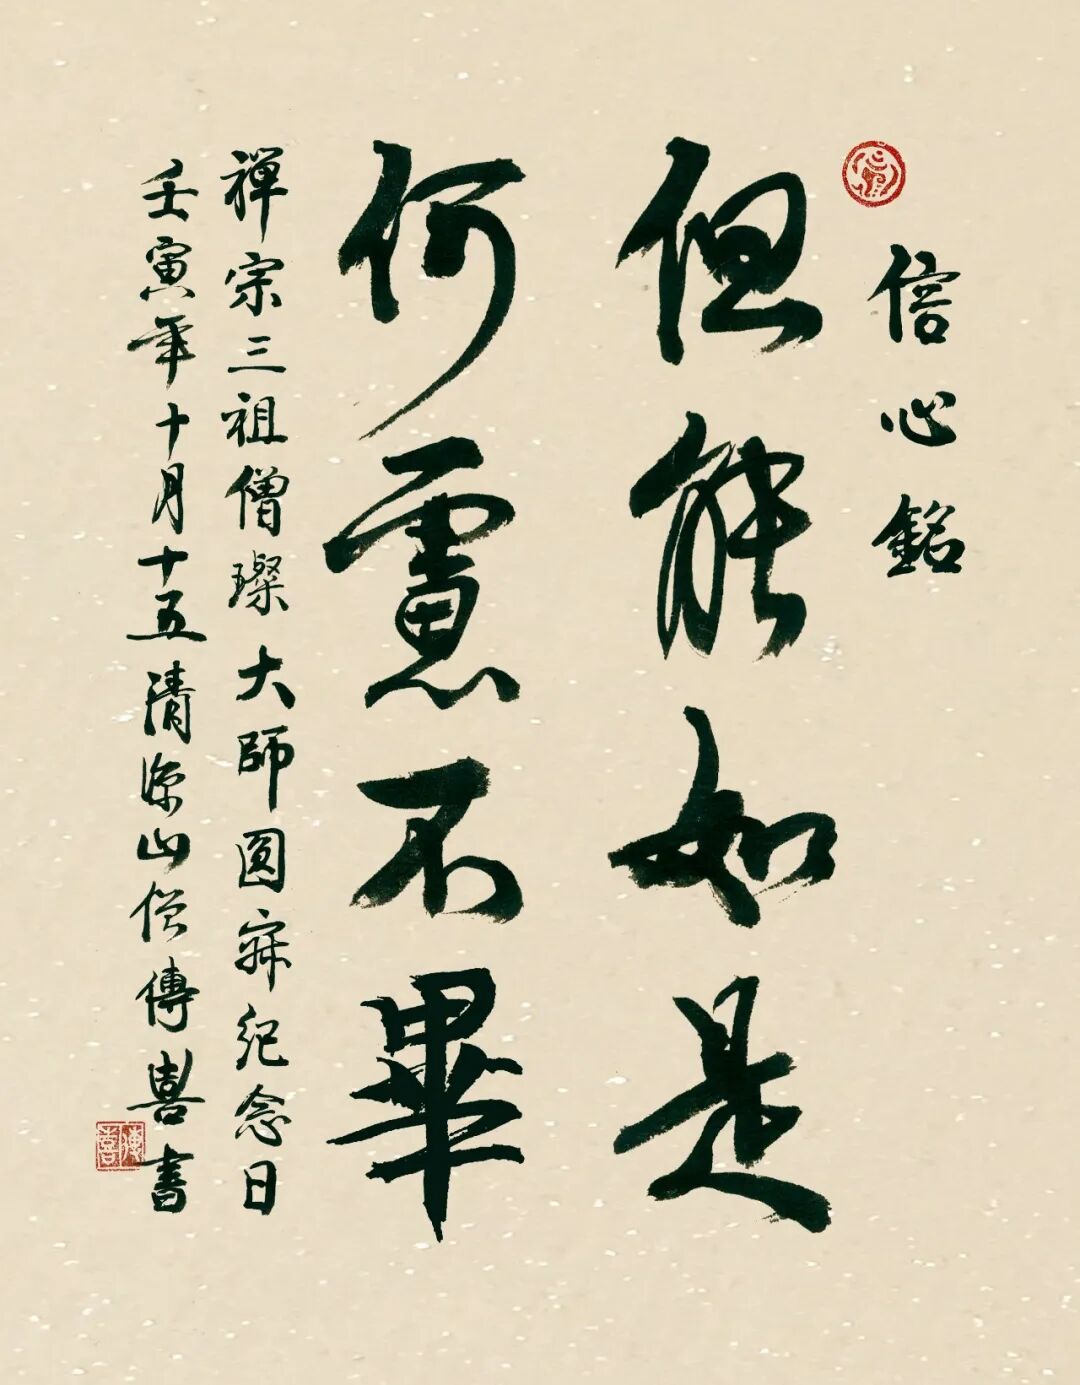 信心銘
但能如是
何慮不畢
禪宗三祖僧璨大師圓寂紀念日
壬寅年十月十五清源山僧傳喜書
傳喜